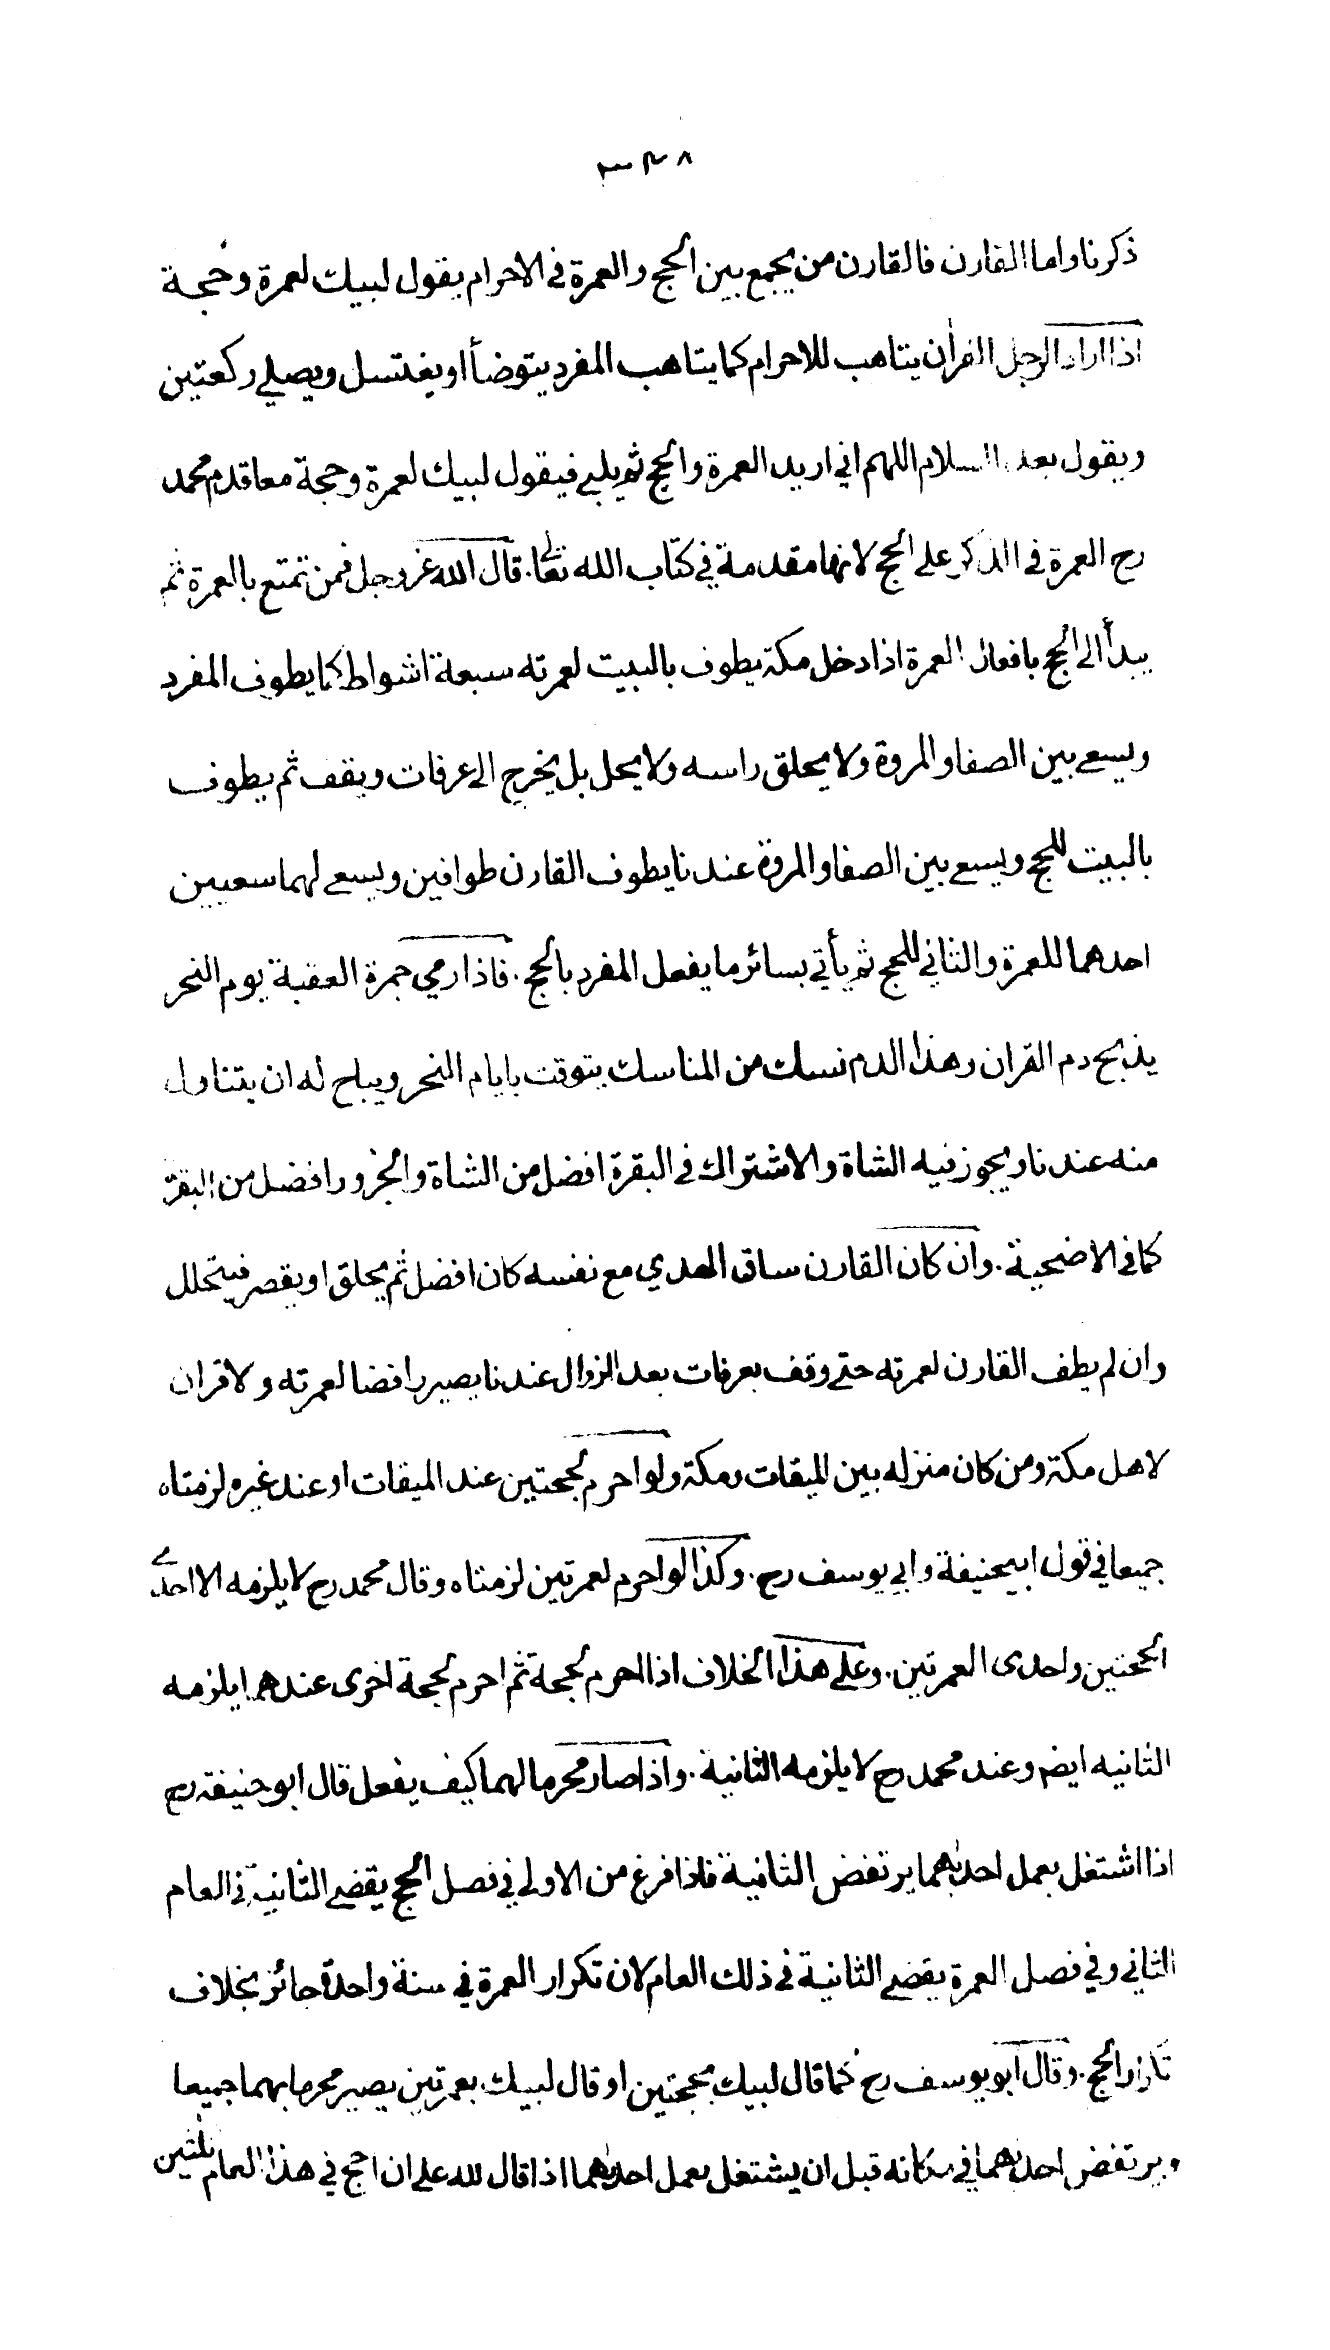 ٣٣٨
ذكرنا واما القارن فالقارن من يجمع بين الحج والعمرة في الاحرام يقول لبيك لعمرة وحجة
اذا اراد الرجل القران يتاهب للاحرام كما يتاهب المفرد يتوضأ او يغتسل ويصلي ركعتين
ويقول بعد السلام اللهم اني اريد العمرة والحج ثم يلبي فيقول لبيك لعمرة وحجة معا قدم محمد
رح العمرة في الذكر على الحج لانها مقدمة في كتاب الله تعا. قال الله عز وجل فمن تمتع بالعمرة ثم
يبدأ الى الحج بافعال العمرة اذا دخل مكة يطوف بالبيت لعمرته سبعة اشواط كما يطوف المفرد
ويسعى بين الصفا والمروة ولا يحلق راسه ولا يحل بل يخرج الى عرفات ويقف ثم يطوف
بالبيت للحج ويسعى بين الصفا والمروة عندنا يطوف القارن طوافين ويسعى لهما سعيين
احدهما للعمرة والثاني للحج ثم يأتي بسائر ما يفعل المفرد بالحج. فاذا رمي جمرة العقبة يوم النحر
يذبح دم القران وهذا الدم نسك من المناسك يتوقت بايام النحر ويباح له ان يتناول
منه عندنا ويجوز فيه الشاة والاشتراك في البقرة افضل من الشاة والجزور افضل من البقرة
كما في الاضحية. وان كان القارن ساق الهدي مع نفسه كان افضل ثم يحلق او يقصر فيتحلل
وان لم يطف القارن لعمرته حتى وقف بعرفات بعد الزوال عندنا يصير رافضا لعمرته ولا قران
لاهل مكة ومن كان منزله بين الميقات ومكة ولو احرم لحجتين عند الميقات او عند غيره لزمتاه
جميعا في قول ابيحنيفة وابي يوسف رح. وكذا لو احرم لعمرتين لزمتاه وقال محمد رح لا يلزمه الا احدى
الحجتين واحدى العمرتين. وعلى هذا الخلاف اذا احرم لحجة ثم احرم لحجة اخرى عندهما يلزمه
الثانيه ايضم وعند محمد رح لا يلزمه الثانية. واذا صار محرما لهما كيف يفعل قال ابو حنيفة رح
اذا اشتغل بعمل احديهما يرتفض الثانية فاذا فرغ من الاولى في فصل الحج يقضي الثانية في العام
الثاني وفي فصل العمرة يقضي الثانية في ذلك العام لان تكرار العمرة في سنة واحدة جائز بخلاف
تكرار الحج. وقال ابو يوسف رح كما قال لبيك بحجتين او قال لبيك بعمرتين يصير محرما بهما جميعا
ويرتفض احديهما في مكانه قبل ان يشتغل بعمل احديهما اذا قال لله على ان احج في هذا العام ثلثين